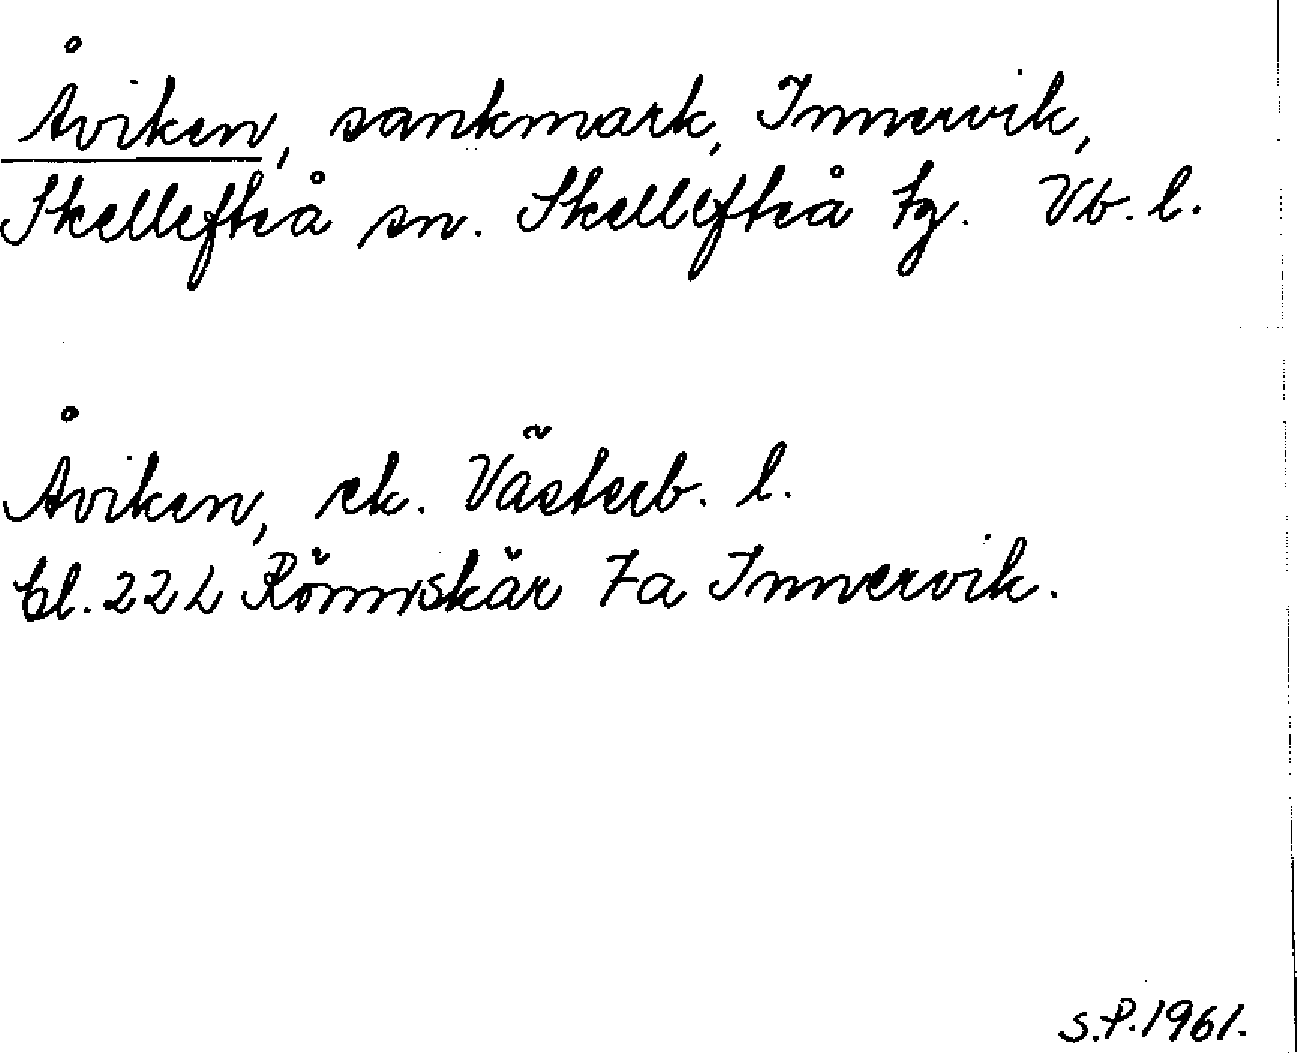 Åviken, sankmark, Innervik,
Skellefteå sn. Skellefteå tg. Vb. l.
Åviken, ek. Västerb. l.
bl. 22 L Rönnskär 7a Innervik.
S.P. 1961.